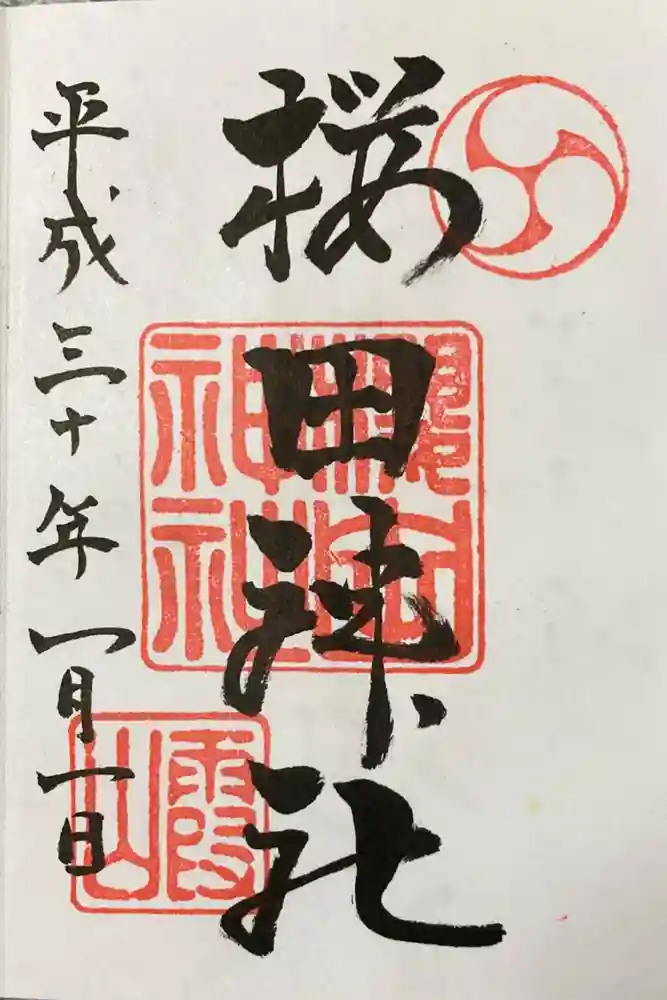 桜田神社
平成三十年一月一日
神社
霞山